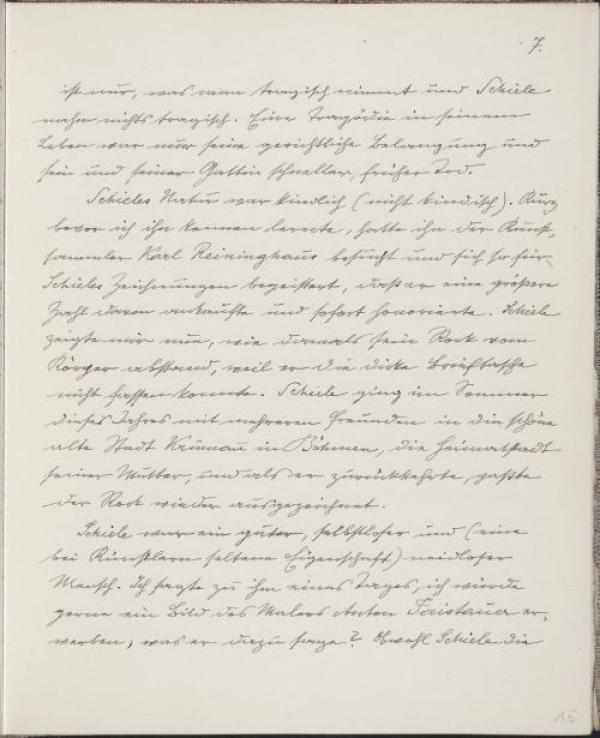 7.
ist nur, was man tragisch nimmt und Schiele
nahm nichts tragisch. Eine Tragödie in seinem
Leben war nur seine gerichtliche Belangung und
sein und seiner Gattin schneller, früher Tod.
Schieles Natur war kindlich (nicht kindisch). Kurz
bevor ich ihn kennen lernte, hatte ihn der Kunst-
sammler Karl Reininghaus besucht und sich so für
Schieles Zeichnungen begeistert, daß er eine größere
Zahl davon ankaufte und sofort honorierte. Schiele
zeigte mir nun, wie damals sein Rock vom
Körper abstand, weil er die dicke Brieftasche
nicht fassen konnte. Schiele ging im Sommer
dieses Jahres mit mehreren Freunden in die schöne
alte Stadt Krumau in Böhmen, die Heimatstadt
seiner Mutter, und als er zurückkehrte, paßte
der Rock wieder ausgezeichnet.
Schiele war ein guter, selbstloser und (eine
bei Künstlern seltene Eigenschaft) neidloser
Mensch. Ich sagte zu ihm eines Tages, ich würde
gerne ein Bild des Malers Anton Faistauer er-
werben; was er dazu sage? Obwohl Schiele die
15